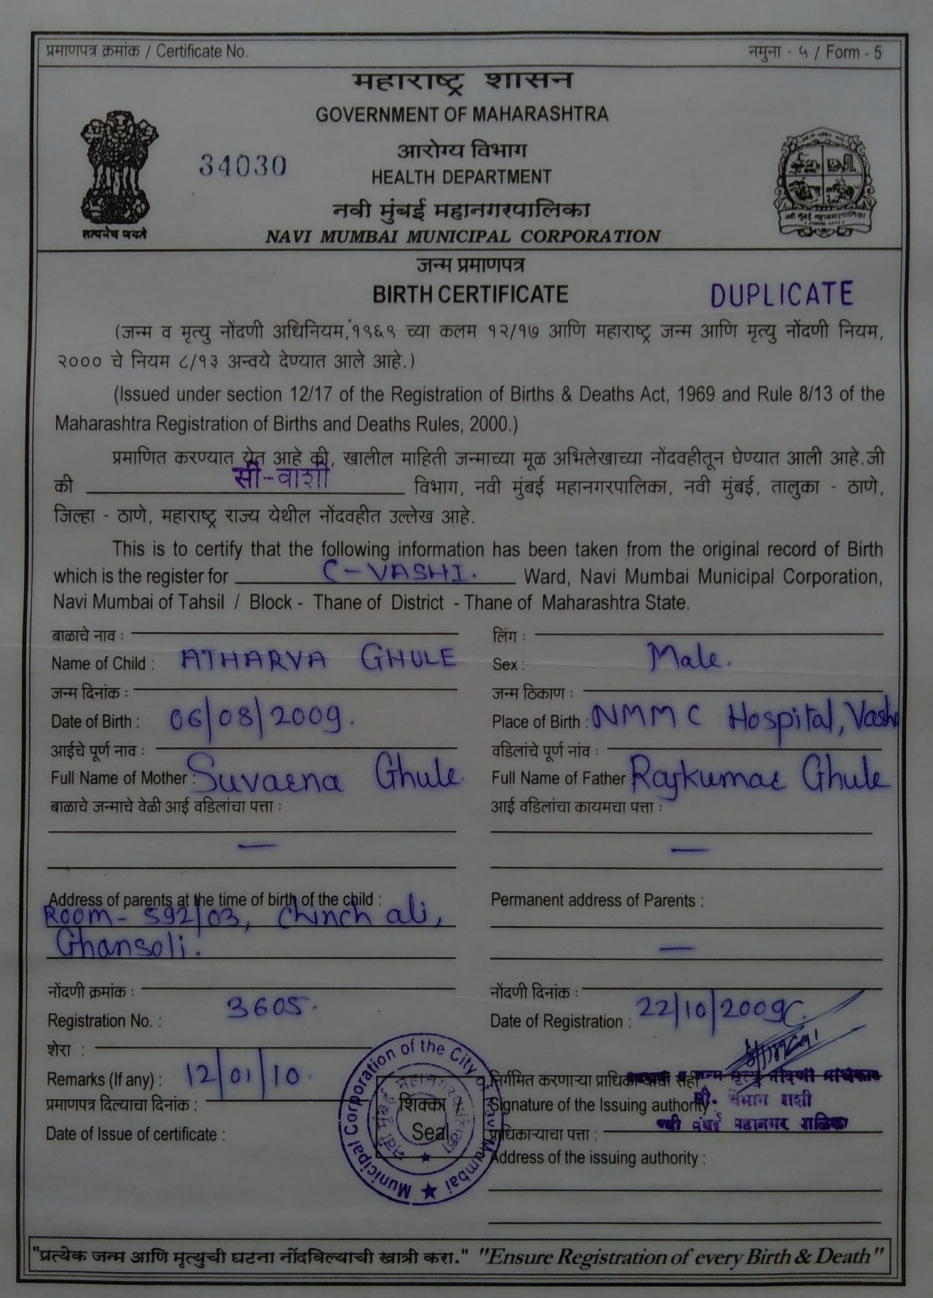 प्रमाणपत्र क्रमांक / Certificate No. नमुना - ५ / Form - 5
महाराष्ट्र शासन
GOVERNMENT OF MAHARASHTRA
34030
आरोग्य विभाग
HEALTH DEPARTMENT
नवी मुंबई महानगरपालिका
NAVI MUMBAI MUNICIPAL CORPORATION
सत्यमेव जयते
नवी मुंबई महानगरपालिका
जन्म प्रमाणपत्र
BIRTH CERTIFICATE
DUPLICATE
(जन्म व मृत्यु नोंदणी अधिनियम, १९६९ च्या कलम १२/१७ आणि महाराष्ट्र जन्म आणि मृत्यु नोंदणी नियम,
२००० चे नियम ८/१३ अन्वये देण्यात आले आहे.)
(Issued under section 12/17 of the Registration of Births & Deaths Act, 1969 and Rule 8/13 of the
Maharashtra Registration of Births and Deaths Rules, 2000.)
प्रमाणित करण्यात येत आहे की, खालील माहिती जन्माच्या मूळ अभिलेखाच्या नोंदवहीतून घेण्यात आली आहे.जी
की सी-वाशी विभाग, नवी मुंबई महानगरपालिका, नवी मुंबई, तालुका - ठाणे,
जिल्हा - ठाणे, महाराष्ट्र राज्य येथील नोंदवहीत उल्लेख आहे.
This is to certify that the following information has been taken from the original record of Birth
which is the register for C-VASHI. Ward, Navi Mumbai Municipal Corporation,
Navi Mumbai of Tahsil / Block - Thane of District - Thane of Maharashtra State.
बाळाचे नाव : लिंग :
Name of Child : ATHARVA GHULE Sex : Male.
जन्म दिनांक : जन्म ठिकाण :
Date of Birth : 06/08/2009. Place of Birth : NMMC Hospital, Vashi
आईचे पूर्ण नाव : वडिलांचे पूर्ण नांव :
Full Name of Mother : Suvarna Ghule. Full Name of Father Rajkumar Ghule
बाळाचे जन्माचे वेळी आई वडिलांचा पत्ता : आई वडिलांचा कायमचा पत्ता :
— —
Address of parents at the time of birth of the child : Permanent address of Parents :
Room- 592/03, Chinch ali,
Ghansoli. —
नोंदणी क्रमांक : नोंदणी दिनांक :
Registration No. : 3605. Date of Registration : 22/10/2009
शेरा :
Remarks (If any) : 12/01/10. निर्गमित करणाऱ्या प्राधिकाऱ्याची सही
प्रमाणपत्र दिल्याचा दिनांक : Signature of the Issuing authority
Date of Issue of certificate : प्राधिकाऱ्याचा पत्ता :
Address of the issuing authority :
Municipal Corporation of the City of Navi Mumbai
शिक्का
Seal
"प्रत्येक जन्म आणि मृत्युची घटना नोंदविल्याची खात्री करा." "Ensure Registration of every Birth & Death"